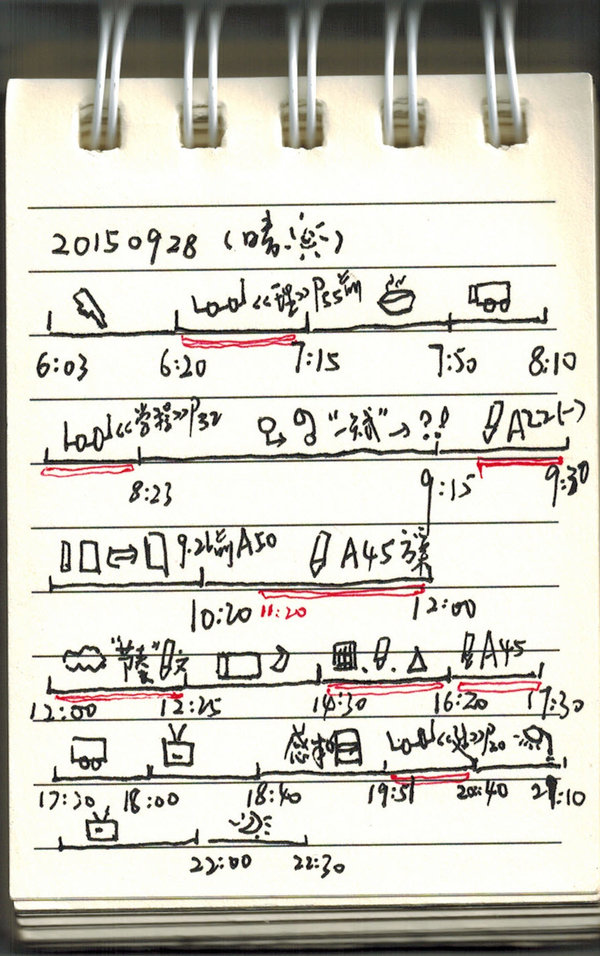 20150928 (晴)
《理》P55前
6:03 6:20 7:15 7:50 8:10
《掌控》P32 "一斌"→?! A22(一)
8:23 9:15 9:30
9.26前A50 A45
10:20 11:20 12:00
"节奏" A45
12:00 12:25 14:30 16:20 17:30
感 P20
17:30 18:00 18:40 19:51 20:40 21:10
22:00 22:30